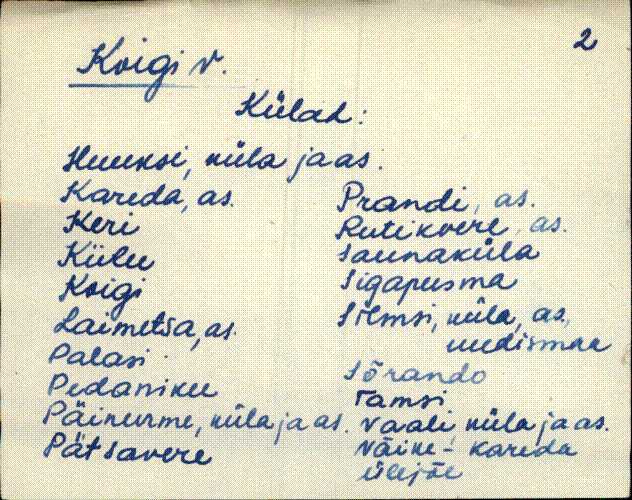 2
Koigi v.
Külad:
Huuksi, küla ja as.
Kareda, as.
Keri
Külu
Koigi
Laimetsa, as.
Palasi
Pedaniku
Päinurme, küla ja as.
Pätsavere
Prandi, as.
Rutikvere, as.
Saunaküla
Sigapusma
Silmsi, küla, as.,
uudismaa
Sõrando
Tamsi
Vaali, küla ja as.
Väike-Kareda
Ülejõe